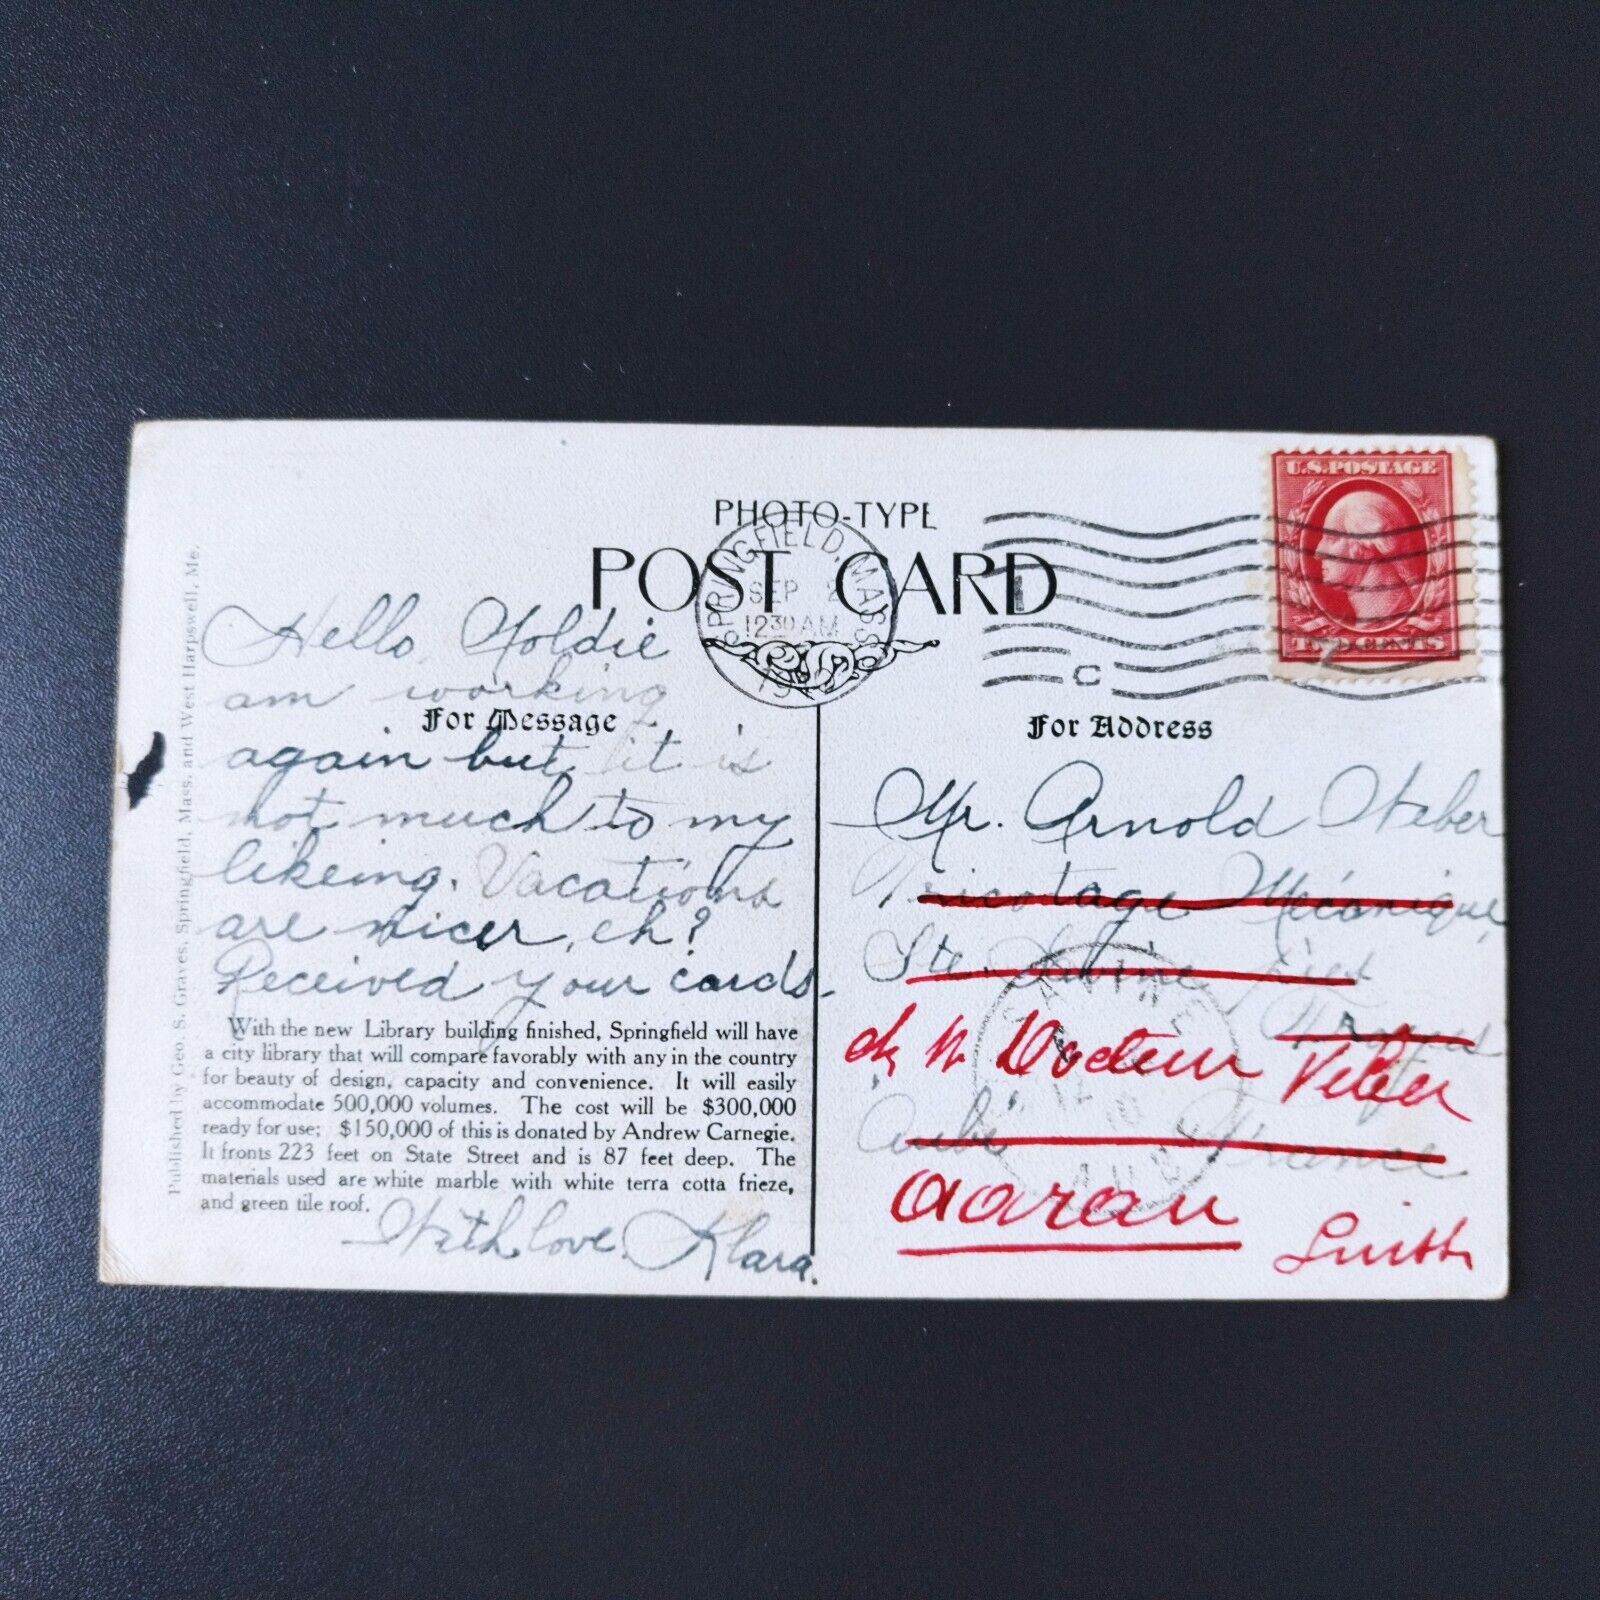 PHOTO-TYPE
POST CARD
SPRINGFIELD, MASS.
SEP 2
12 30 AM
C
U.S. POSTAGE
TWO CENTS
For Message
For Address
Hello Goldie
am working
again but it is
not much to my
likeing. Vacations
are nicer, eh?
Received your cards.
With the new Library building finished, Springfield will have
a city library that will compare favorably with any in the country
for beauty of design, capacity and convenience. It will easily
accommodate 500,000 volumes. The cost will be $300,000
ready for use; $150,000 of this is donated by Andrew Carnegie.
It fronts 223 feet on State Street and is 87 feet deep. The
materials used are white marble with white terra cotta frieze,
and green tile roof.
With love Klara.
Published by Geo. S. Graves, Springfield, Mass. and West Harpswell, Me.
Mr. Arnold Weber
Tricotage Mécanique
Ste. Savine
Troyes
Aube France
Weber
Aarau